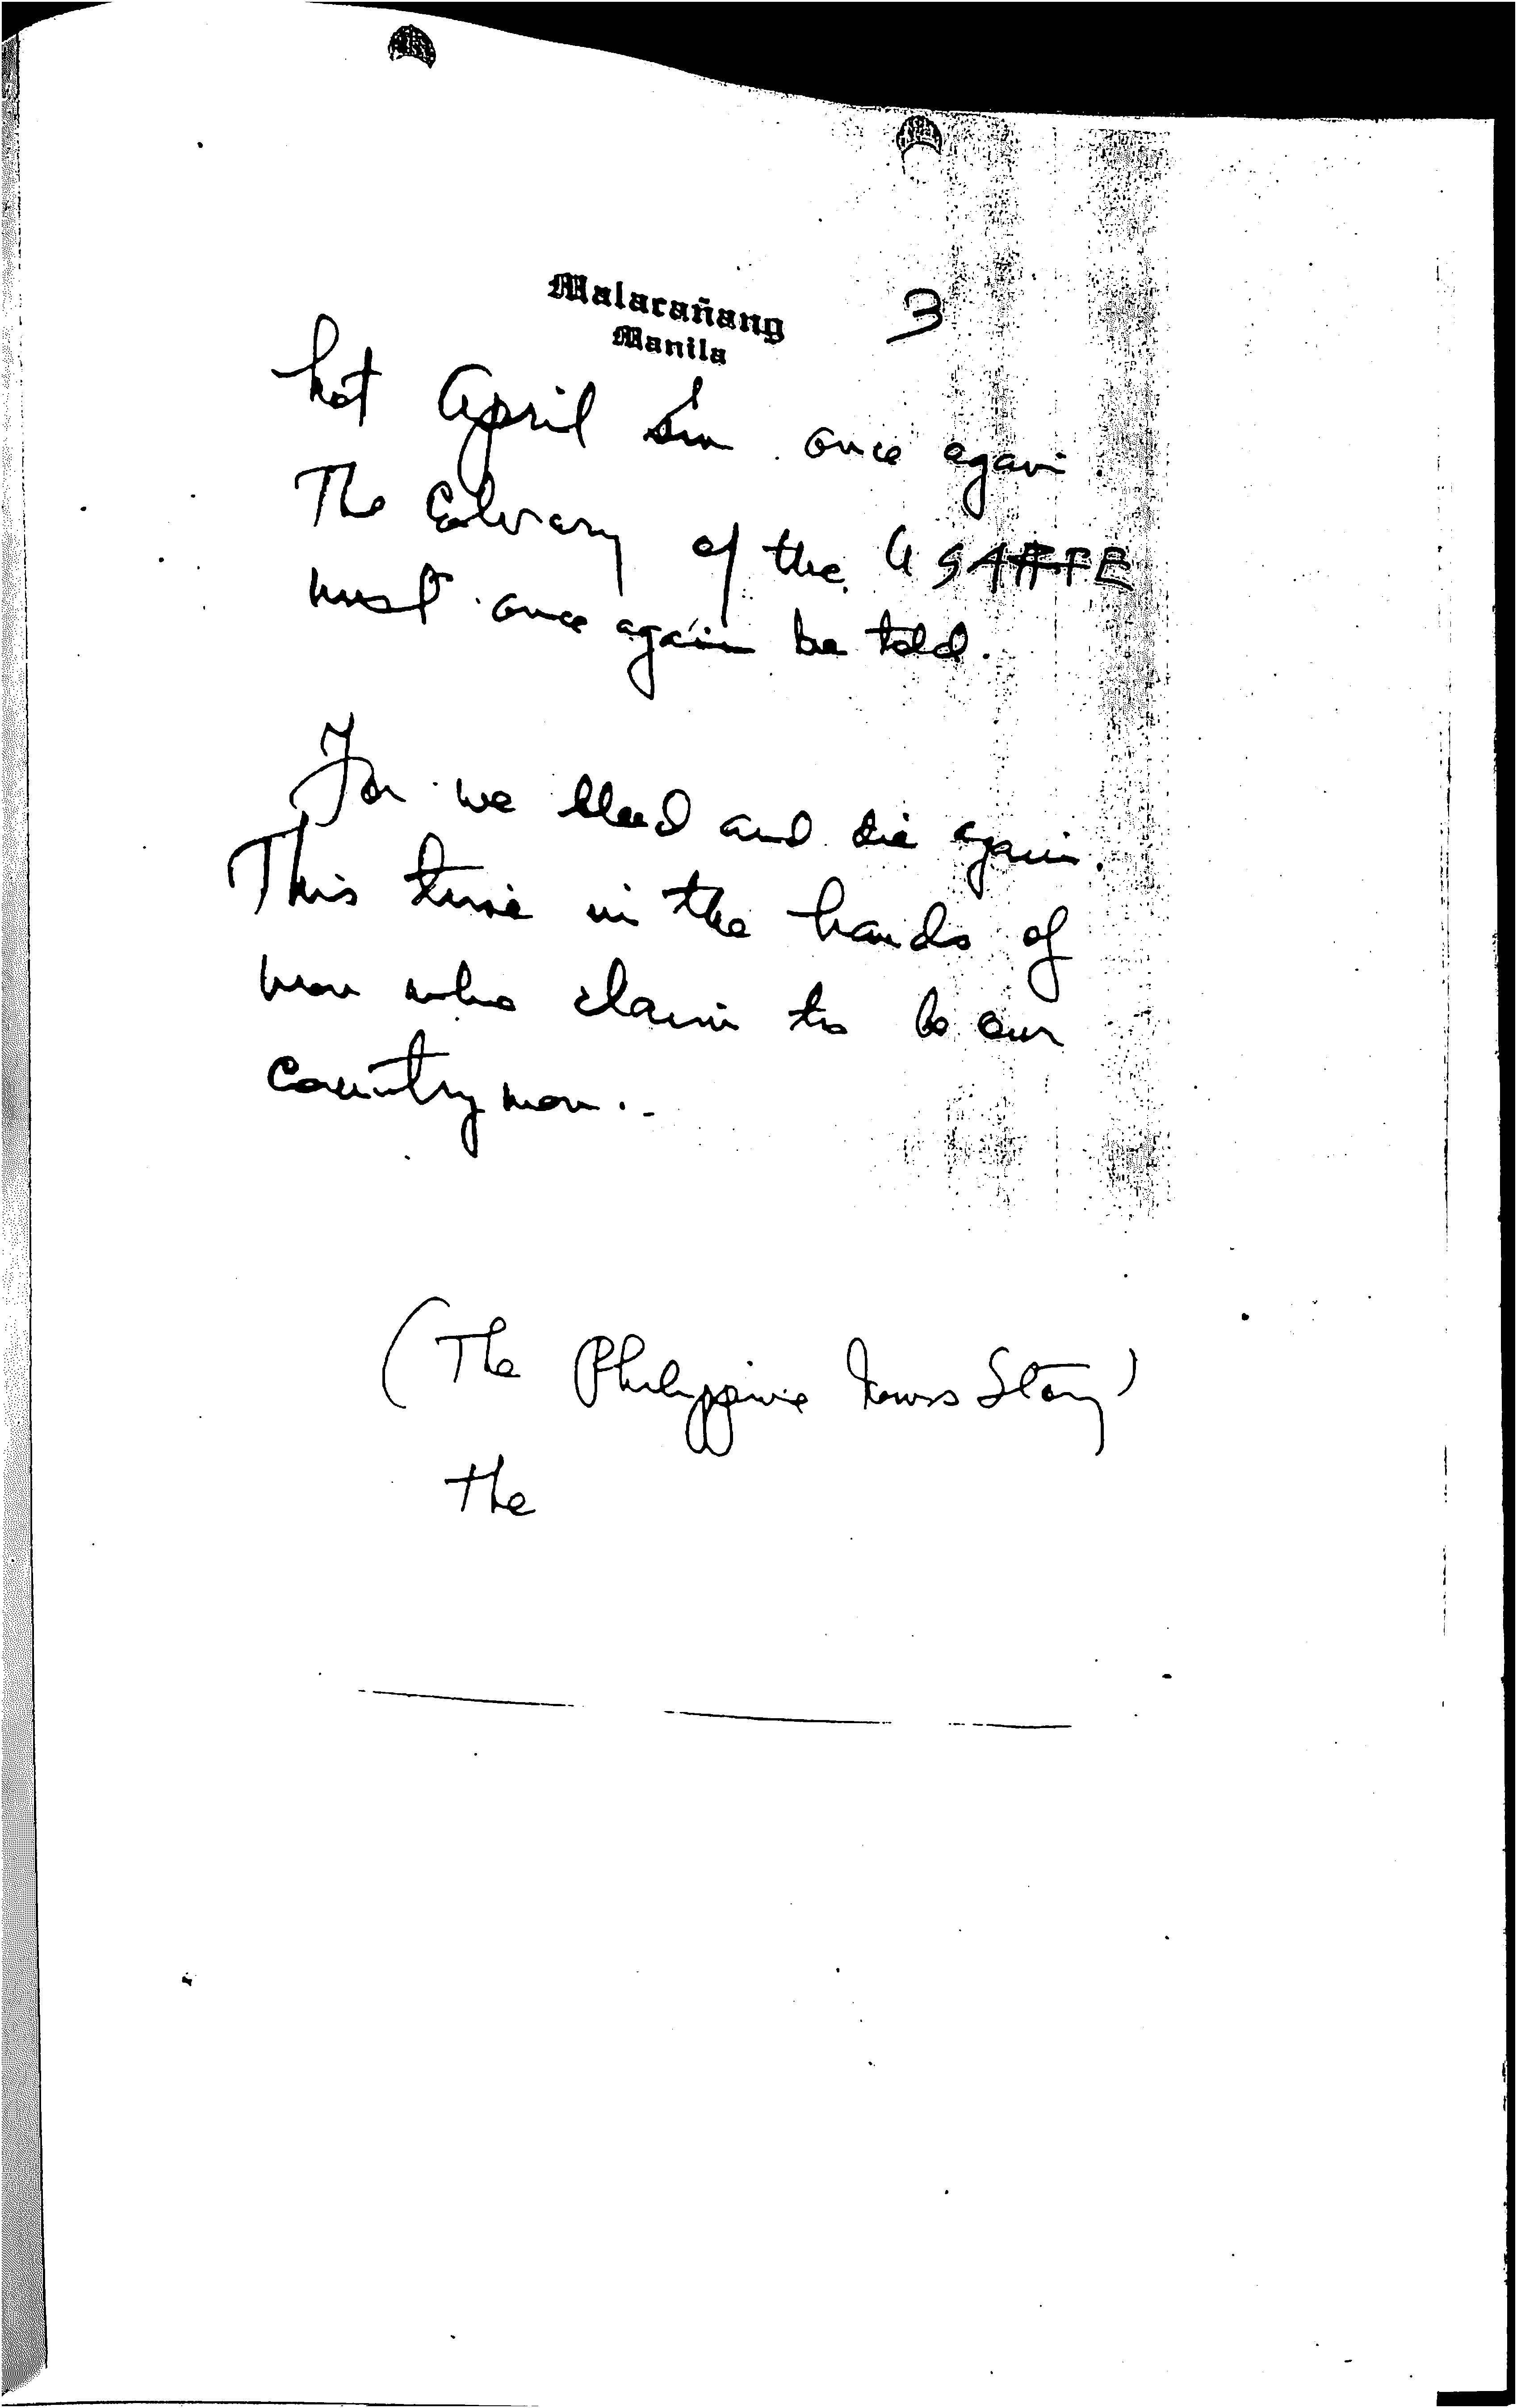 Malacañang
Manila
3
hot April sun once again.
The Calvary of the USAFFE
must once again be told.
For we bleed and die again.
This time in the hands of
men who claim to be our
countrymen..
(The Philippine News Story)
The